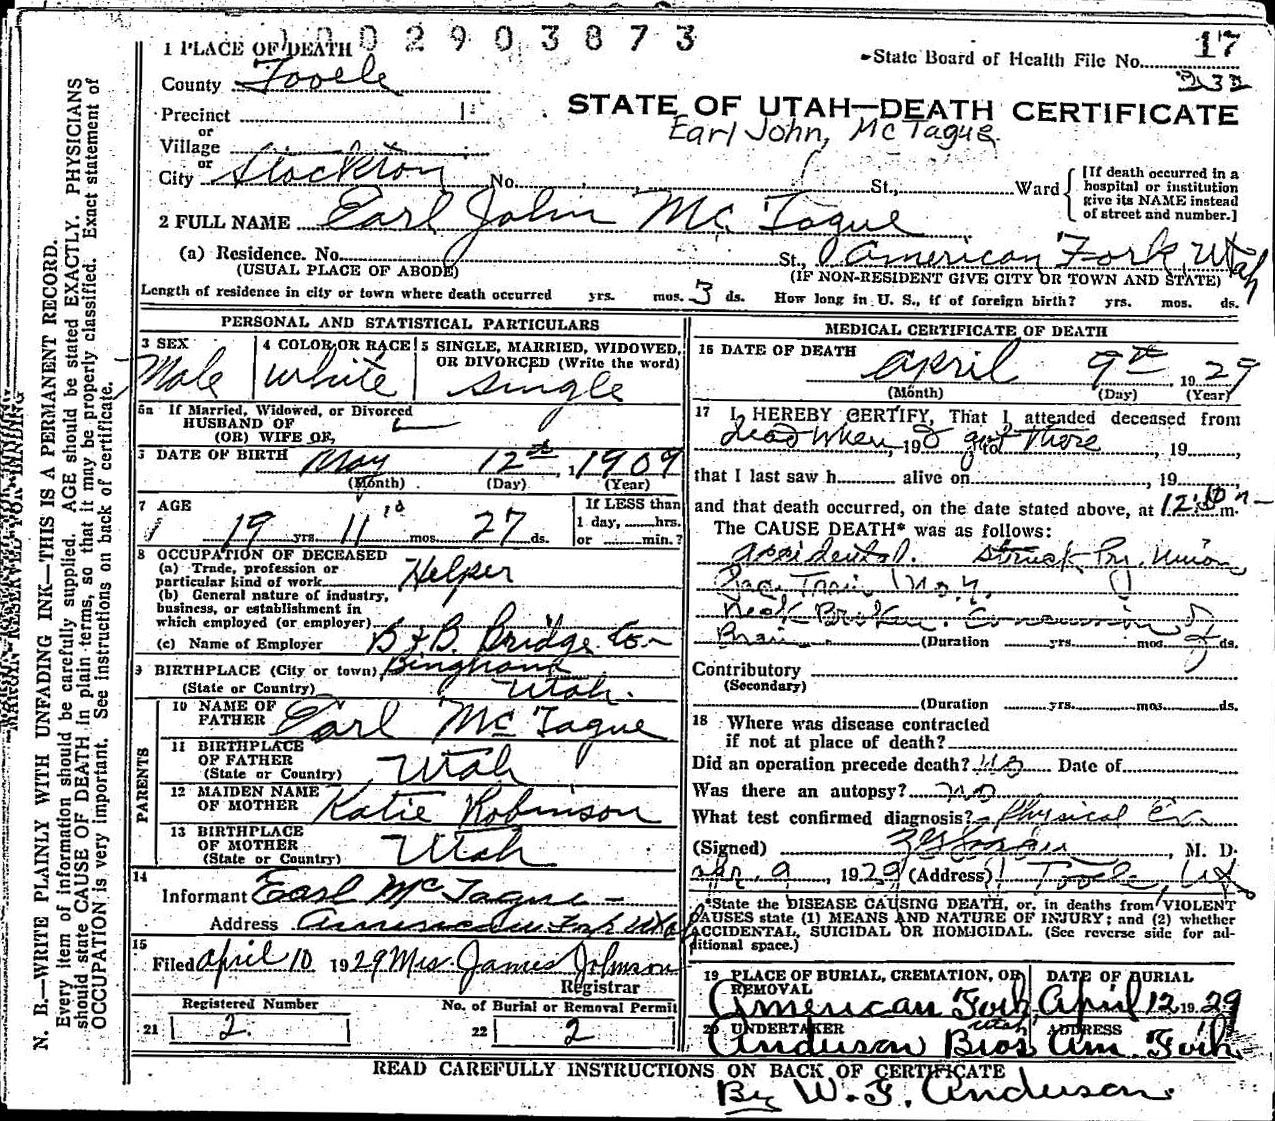 1 PLACE OF DEATH
1 0 0 2 9 0 3 8 7 3
State Board of Health File No. 17
232
County Tooele
Precinct
STATE OF UTAH—DEATH CERTIFICATE
Earl John, McTague
or
Village
or
City Stockton No. St., Ward
[If death occurred in a hospital or institution give its NAME instead of street and number.]
2 FULL NAME Earl John McTague
(a) Residence. No. St., American Fork, Utah
(USUAL PLACE OF ABODE) (IF NON-RESIDENT GIVE CITY OR TOWN AND STATE)
Length of residence in city or town where death occurred yrs. mos. 3 ds. How long in U. S., if of foreign birth? yrs. mos. ds.
PERSONAL AND STATISTICAL PARTICULARS
3 SEX 4 COLOR OR RACE 5 SINGLE, MARRIED, WIDOWED, OR DIVORCED (Write the word)
Male white single
5a If Married, Widowed, or Divorced
HUSBAND OF
(OR) WIFE OF,
DATE OF BIRTH May 12th, 1909
(Month) (Day) (Year)
7 AGE If LESS than
19 yrs. 11 mos. 27 ds. 1 day, hrs.
or min.?
8 OCCUPATION OF DECEASED
(a) Trade, profession or
particular kind of work Helper
(b) General nature of industry,
business, or establishment in
which employed (or employer)
(c) Name of Employer B & B. Bridge Co
9 BIRTHPLACE (City or town) Bingham
(State or Country) Utah.
PARENTS
10 NAME OF
FATHER Earl McTague
11 BIRTHPLACE
OF FATHER
(State or Country) Utah
12 MAIDEN NAME
OF MOTHER Katie Robinson
13 BIRTHPLACE
OF MOTHER
(State or Country) Utah
14
Informant Earl McTague
Address American Fork Utah
15
Filed April 10 1929 Mrs. James Johnson
Registrar
Registered Number No. of Burial or Removal Permit
21 2. 22 2
MEDICAL CERTIFICATE OF DEATH
16 DATE OF DEATH April 9th, 1929
(Month) (Day) (Year)
17 I HEREBY CERTIFY, That I attended deceased from
dead when, 19 I got to there, 19
that I last saw h alive on, 19
and that death occurred, on the date stated above, at m.
The CAUSE DEATH* was as follows:
accidental. Struck By. Union
Pac. Train No. 4.
Neck Broken. Concussion of
Brain (Duration yrs. mos. ds.
Contributory
(Secondary)
(Duration yrs. mos. ds.
18 Where was disease contracted
if not at place of death?
Did an operation precede death? No Date of
Was there an autopsy? No
What test confirmed diagnosis? Physical Ex
(Signed), M. D.
Apr. 9, 1929 (Address) Tooele, Ut
*State the DISEASE CAUSING DEATH, or, in deaths from VIOLENT
CAUSES state (1) MEANS AND NATURE OF INJURY; and (2) whether
ACCIDENTAL, SUICIDAL OR HOMICIDAL. (See reverse side for ad-
ditional space.)
19 PLACE OF BURIAL, CREMATION, OR REMOVAL DATE OF BURIAL
American Fork Utah April 12 1929
20 UNDERTAKER ADDRESS
Anderson Bros Am. Fork
READ CAREFULLY INSTRUCTIONS ON BACK OF CERTIFICATE
By W. F. Anderson.
MARGIN RESERVED FOR BINDING
N. B.—WRITE PLAINLY WITH UNFADING INK—THIS IS A PERMANENT RECORD.
Every item of information should be carefully supplied. AGE should be stated EXACTLY. PHYSICIANS
should state CAUSE OF DEATH in plain terms, so that it may be properly classified. Exact statement of
OCCUPATION is very important. See instructions on back of certificate.